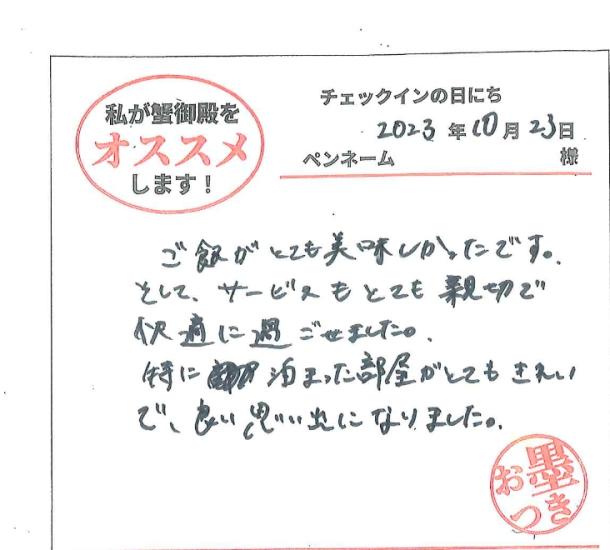 私が蟹御殿を
オススメ
します!
チェックインの日にち
2023年10月23日
ペンネーム 様
ご飯がとても美味しかったです。
そして、サービスもとても親切で
快適に過ごせました。
特に 泊まった部屋がとてもきれい
で、良い思い出になりました。
お墨
つき